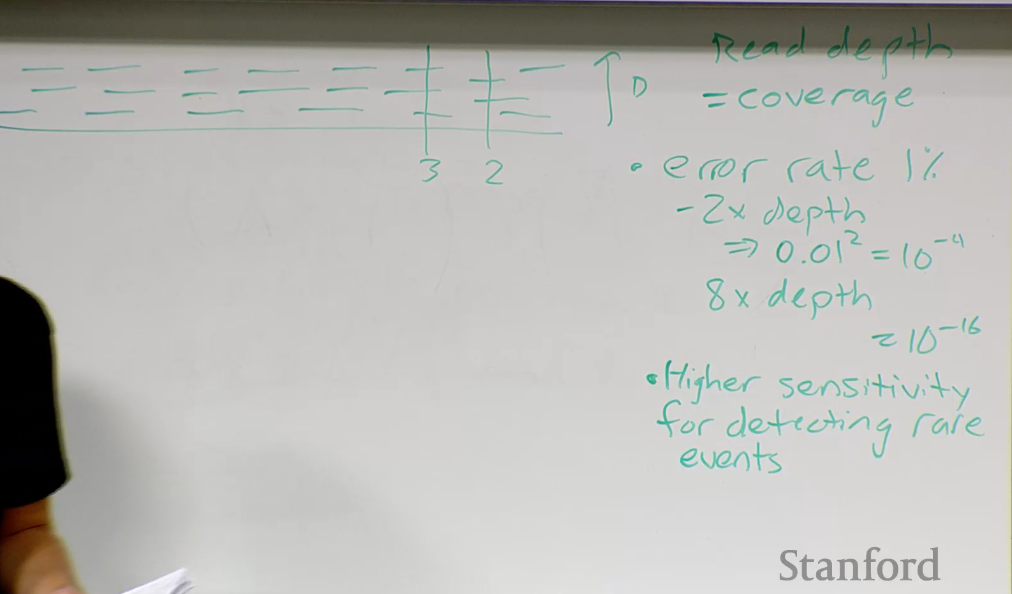 Read depth
D
= coverage
3 2
• error rate 1%
- 2x depth
⇒ 0.01² = 10⁻⁴
8x depth
= 10⁻¹⁶
• Higher sensitivity
for detecting rare
events
Stanford